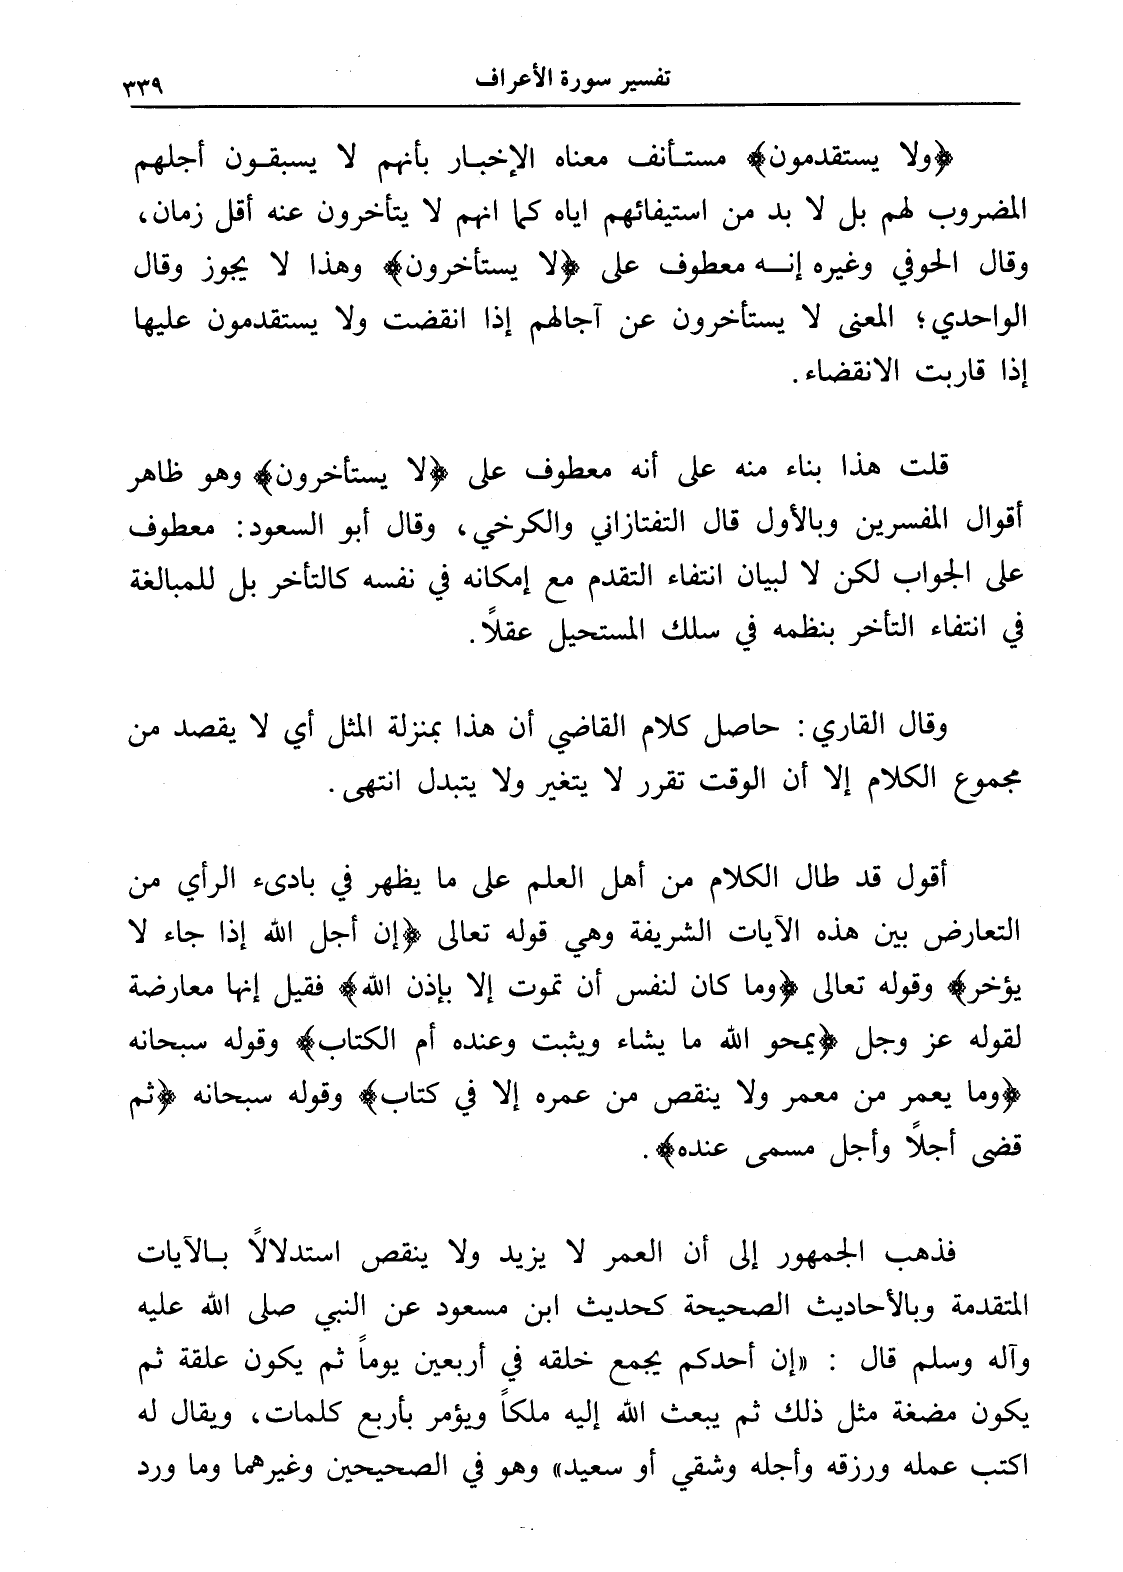 تفسير سورة الأعراف ٣٣٩
﴿ولا يستقدمون﴾ مستأنف معناه الإخبار بأنهم لا يسبقون أجلهم
المضروب لهم بل لا بد من استيفائهم اياه كما انهم لا يتأخرون عنه أقل زمان،
وقال الحوفي وغيره إنه معطوف على ﴿لا يستأخرون﴾ وهذا لا يجوز وقال
الواحدي؛ المعنى لا يستأخرون عن آجالهم إذا انقضت ولا يستقدمون عليها
إذا قاربت الانقضاء.
قلت هذا بناء منه على أنه معطوف على ﴿لا يستأخرون﴾ وهو ظاهر
أقوال المفسرين وبالأول قال التفتازاني والكرخي، وقال أبو السعود: معطوف
على الجواب لكن لا لبيان انتفاء التقدم مع إمكانه في نفسه كالتأخر بل للمبالغة
في انتفاء التأخر بنظمه في سلك المستحيل عقلاً.
وقال القاري: حاصل كلام القاضي أن هذا بمنزلة المثل أي لا يقصد من
مجموع الكلام إلا أن الوقت تقرر لا يتغير ولا يتبدل انتهى.
أقول قد طال الكلام من أهل العلم على ما يظهر في بادىء الرأي من
التعارض بين هذه الآيات الشريفة وهي قوله تعالى ﴿إن أجل الله إذا جاء لا
يؤخر﴾ وقوله تعالى ﴿وما كان لنفس أن تموت إلا بإذن الله﴾ فقيل إنها معارضة
لقوله عز وجل ﴿يمحو الله ما يشاء ويثبت وعنده أم الكتاب﴾ وقوله سبحانه
﴿وما يعمر من معمر ولا ينقص من عمره إلا في كتاب﴾ وقوله سبحانه ﴿ثم
قضى أجلاً وأجل مسمى عنده﴾.
فذهب الجمهور إلى أن العمر لا يزيد ولا ينقص استدلالاً بالآيات
المتقدمة وبالأحاديث الصحيحة كحديث ابن مسعود عن النبي صلى الله عليه
وآله وسلم قال : «إن أحدكم يجمع خلقه في أربعين يوماً ثم يكون علقة ثم
يكون مضغة مثل ذلك ثم يبعث الله إليه ملكاً ويؤمر بأربع كلمات، ويقال له
اكتب عمله ورزقه وأجله وشقي أو سعيد» وهو في الصحيحين وغيرهما وما ورد